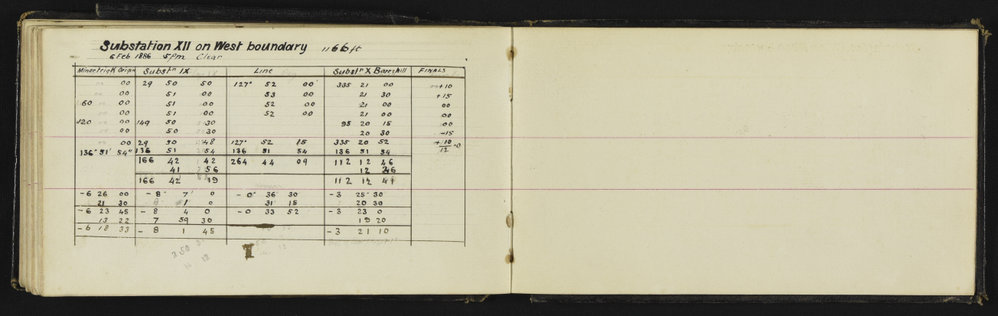 Substation XII on West boundary 1166 ft
6 Feb 1886 5pm Clear
Subst<sup>n</sup> IX Line Subst<sup>n</sup> X Barehill FINALS
00 29 50 50 127° 52 00 335 21 00 +10
00 51 00 53 00 21 30 +15
60 00 51 00 52 00 21 00 00
00 51 00 52 00 21 00 00
120 00 149 50 30 95 20 15 00
00 50 30 20 30 -15
00 29 50 48 127° 52 15 335 20 52 +10
136° 51' 54" 136 51 54 136 51 54 136 51 54 12
166 42 42 264 44 09 112 12 46
41 56 12
166 42 19 112 12 47
-6 26 00 - 8° 7' 0 - 0° 36 30 - 3 25 30
21 30 0 31 15 20 30
-6 23 45 - 8 4 0 - 0 33 52 - 3 23 0
13 22 7 59 30 19 20
-6 18 33 - 8 1 45 - 3 21 10